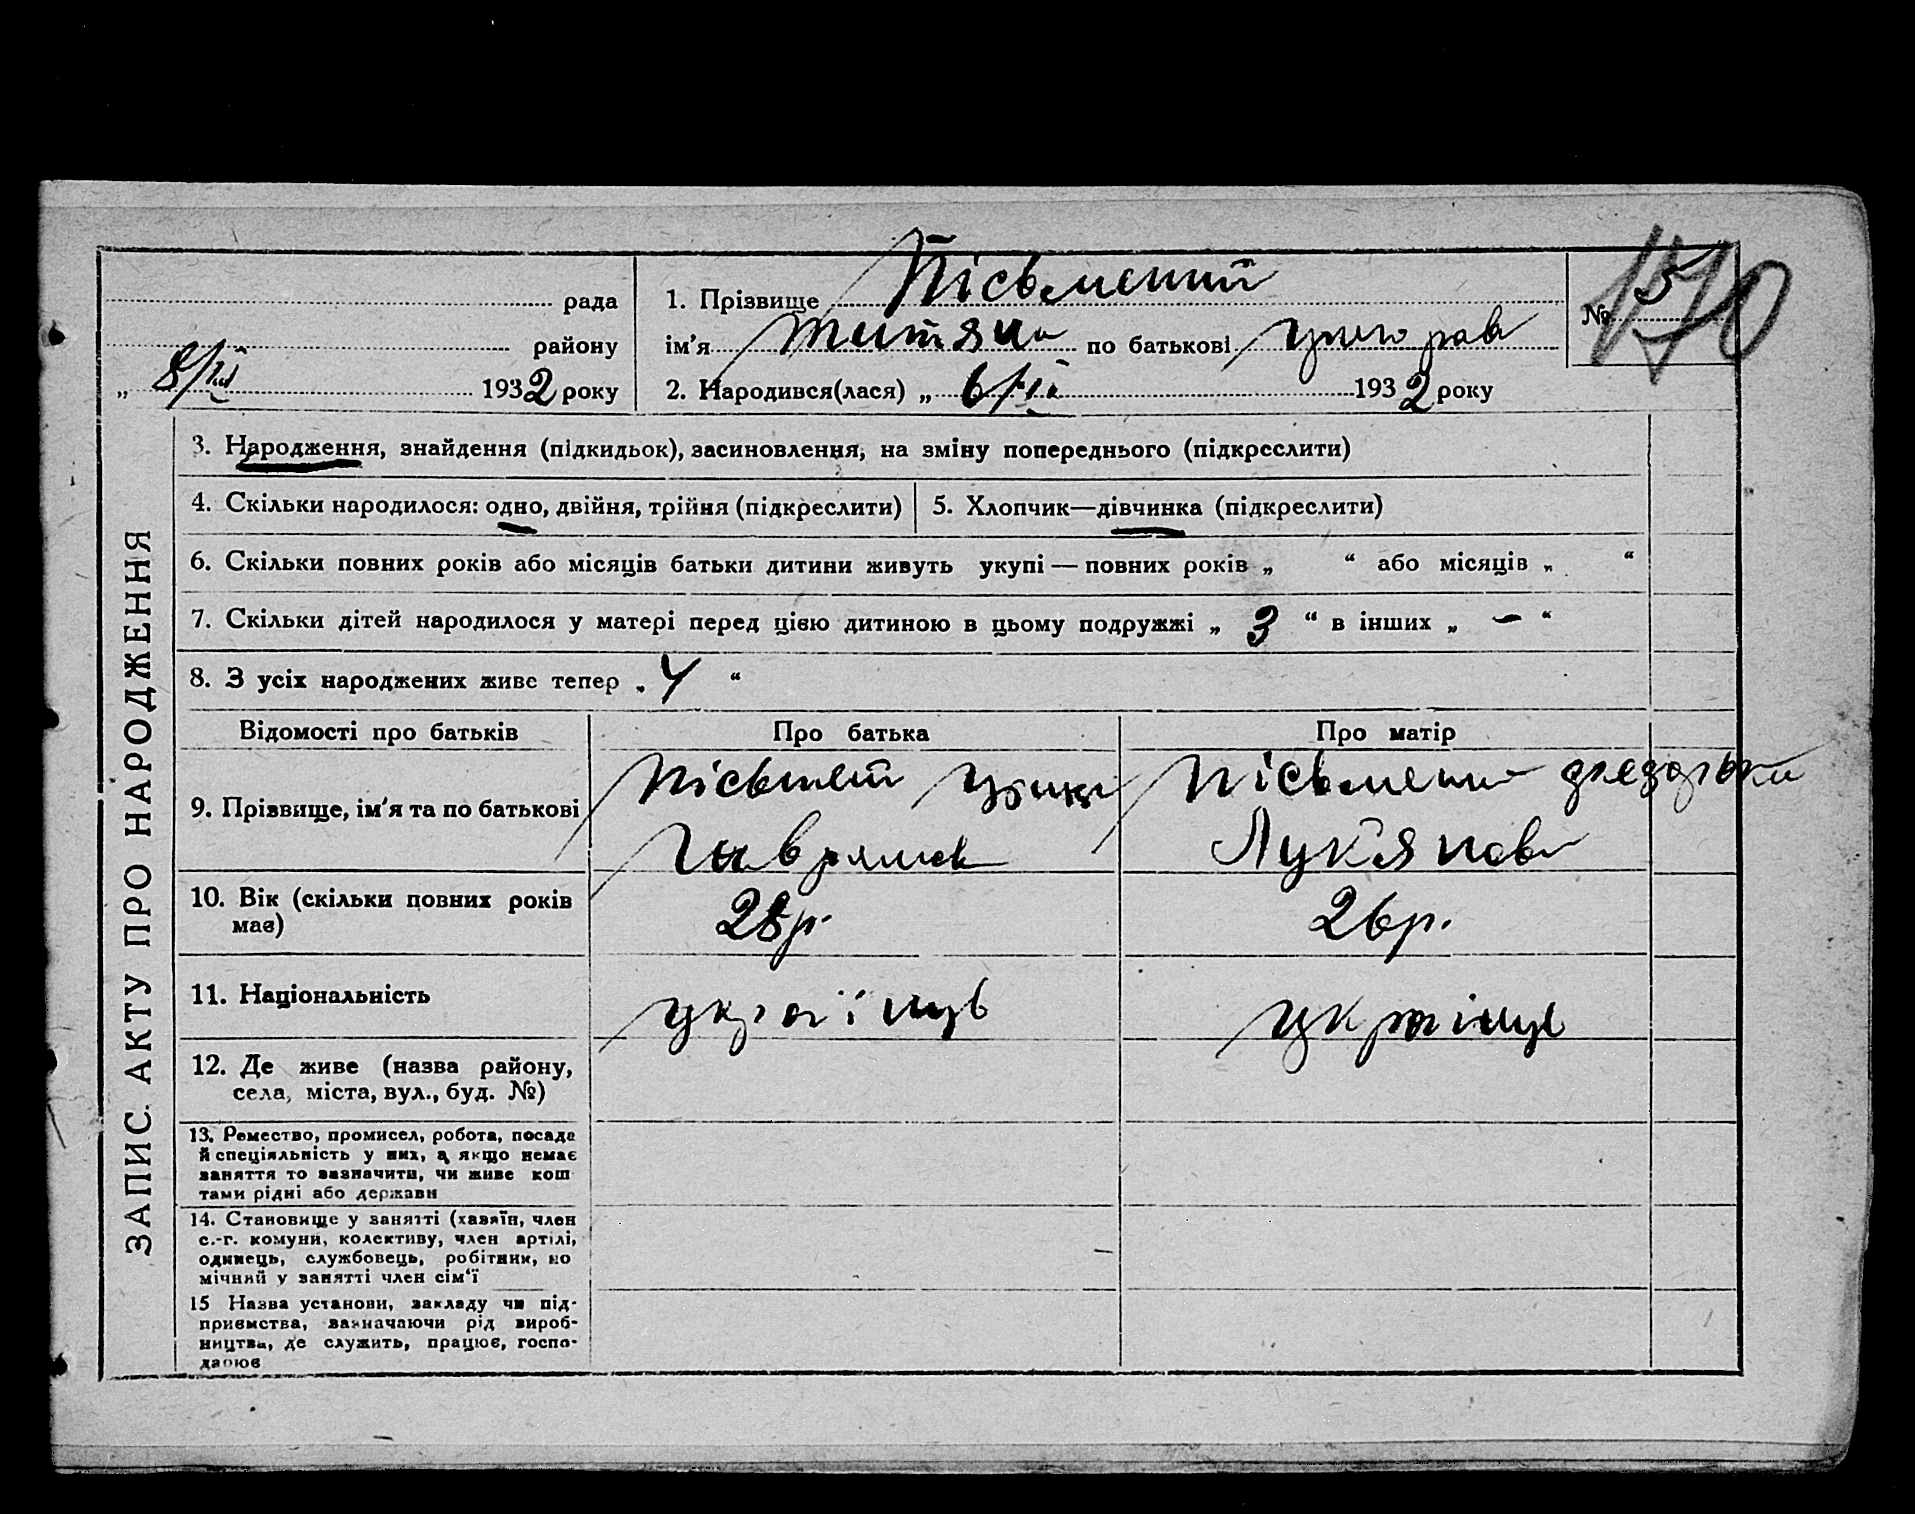 рада
району
„ 8/III 1932 року
1. Прізвище Пісьмений
ім'я Титяна по батькові
2. Народився(лася) „ 6/III 1932 року
№ 5
170
3. Народження, знайдення (підкидьок), засиновлення, на зміну попереднього (підкреслити)
4. Скільки народилося: одно, двійня, трійня (підкреслити)
5. Хлопчик—дівчинка (підкреслити)
6. Скільки повних років або місяців батьки дитини живуть укупі — повних років „ “ або місяців „ “
7. Скільки дітей народилося у матері перед цією дитиною в цьому подружжі „ 3 “ в інших „ – “
8. З усіх народжених живе тепер „ 4 “
Відомості про батьків
Про батька
Про матір
9. Прізвище, ім'я та по батькові
Пісьмен
Пісьмени
Лук'янов
10. Вік (скільки повних років
має)
28 р.
26 р.
11. Національність
українць
українць
12. Де живе (назва району,
села, міста, вул., буд. №)
13. Ремество, промисел, робота, посада
й спеціяльність у них, а якщо немає
заняття то зазначити, чи живе кош
тами рідні або держави
14. Становище у занятті (хазяїн, член
с.-г. комуни, колективу, член артілі,
одинець, службовець, робітник, по
мічний у занятті член сім'ї
15 Назва установи, закладу чи під-
приємства, зазначаючи рід вироб-
ництва, де служить, працює, госпо-
дарює
ЗАПИС АКТУ ПРО НАРОДЖЕННЯ